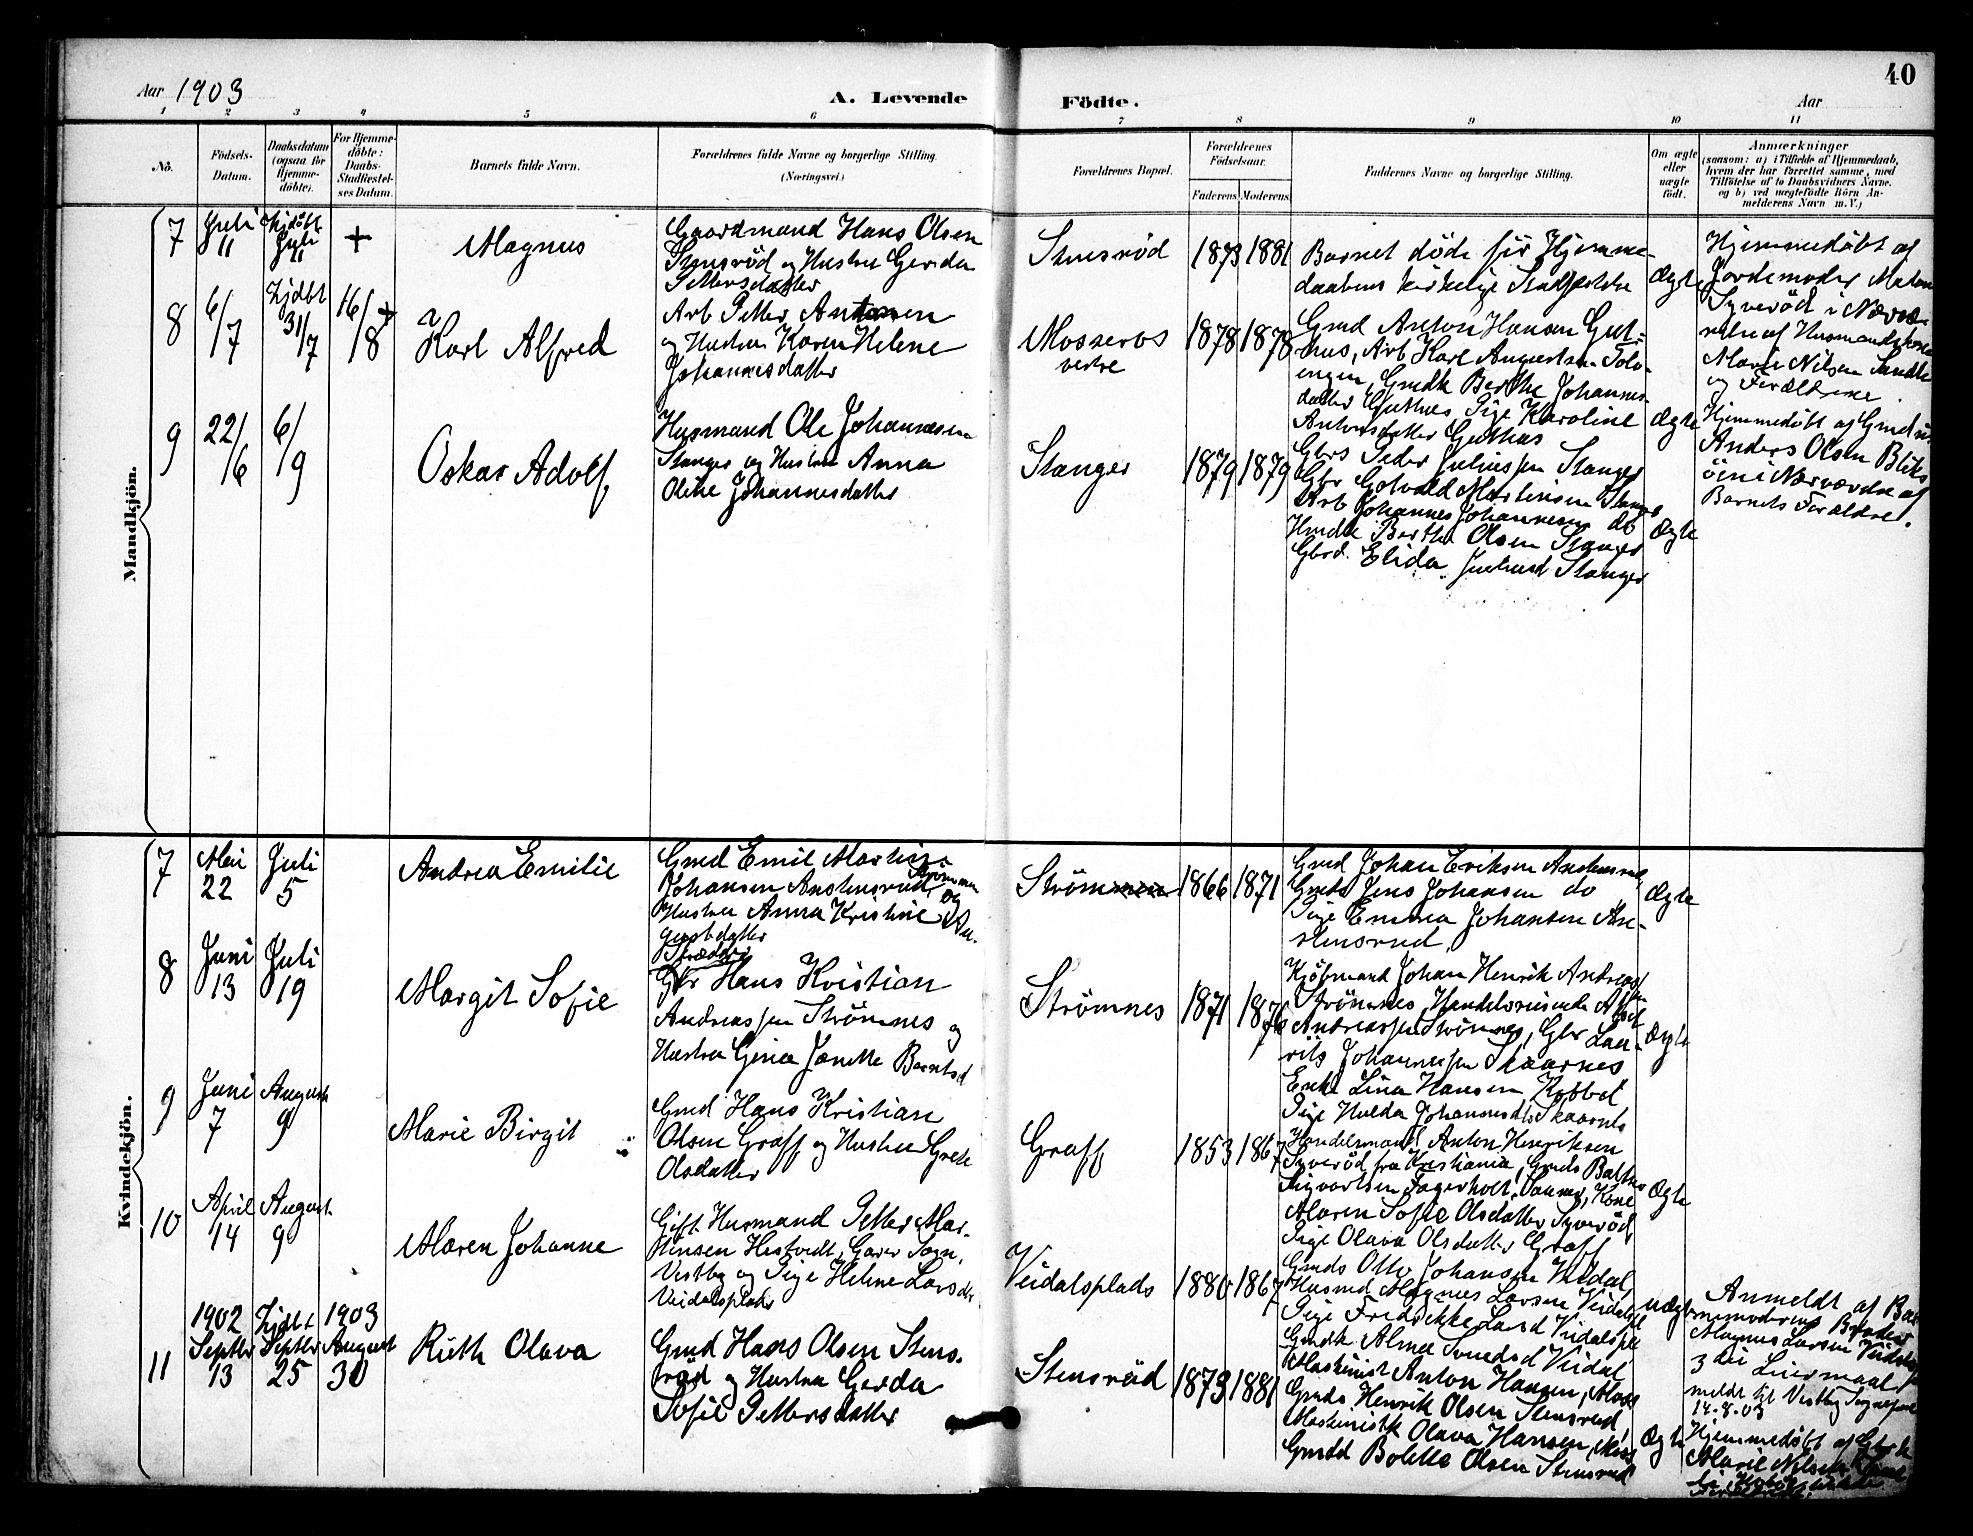 40
Aar 1903
A. Levende
Födte.
Aar
1 2 3 4 5 6 7 8 9 10 11
No.
Födsels-
Datum.
Daabsdatum
(ogsaa for
Hjemme-
döbte).
For Hjemme-
döbte:
Daabs-
Stadfæstel-
ses Datum.
Barnets fulde Navn.
Forældrenes fulde Navne og borgerlige Stilling.
(Næringsvei.)
Forældrenes Bopæl.
Forældrenes
Födselsaar.
Faderens
Moderens
Faddernes Navne og borgerlige Stilling.
Om ægte
eller
uægte
födt.
Anmærkninger
(saasom: a) i Tilfælde af Hjemmedaab,
hvem der har forrettet samme, med
Tilföielse af to Daabsvidners Navne,
og b) ved uægtefödte Börn An-
melderens Navn m. V.)
Mandkjön.
7
Juli
11
Hjdöbt
Juli
11
+
Magnus
Gaardmand Hans Olsen
Stensröd og Hustru Gerda
Pettersdatter
Stensröd
1873
1881
Barnet døde før Hjemme-
daabens kirkelige Stadfestelse
Ægte
Hjemmedøbt af
Jordemoder
Syveröd i Nærvæ-
relse af Husmandskone
Marie Nilsen
og Forældrene.
8
6/7
Hjdøbt
31/7
16/8
Karl Alfred
Arb Petter Antonsen
og Hustru Karen Helene
Johannesdatter
Mosseros
vestre
1878
1878
Grmd Anton Hansen Gut-
hus, Arb Karl Augustsen Solv-
engen, Grmdk Berthe Johannes-
datter Guthus, Pige Karoline
Antonsdatter Guthus
Ægte
Hjemmedöbt af Grmd
Anders Olsen Bliks-
öien i Nærværelse af
Barnets Forældre.
9
22/6
6/9
Oskar Adolf
Husmand Ole Johannesen
Stanger og Hustru Anna
Oline Johannesdatter
Stanger
1879
1879
Gbrs Peder Juliussen Stanger
Gbr Gotvald Martinsen Stanger
Arb Johannes Johannesen do
Hmdk Berthe Olsen Stanger
Gbrd. Elida Juliusd Stanger
Ægte
Kvindekjön.
7
Mai
22
Juli
5
Andrea Emilie
Grmd Emil Martin
Johansen Anstensrud, Strömmen
og
Hustru Anna Kristine Au-
gustsdatter
Strömmen
1866
1871
Grmd Johan Eriksen Anstensrud
Grmds Jens Johansen do
Pige Emma Johansen An-
stensrud
Ægte
8
Juni
13
Juli
19
Margit Sofie
Gbr Hans Kristian
Andreassen Strömnes og
Hustru Gina Janette Berntsd
Strömnes
1871
1876
Kjöbmand Johan Henrik Andreas-
sen
Strömnes, Handelsreisende Aksel
Andreassen Strömnes, Gbr Lau-
rits Johannessen Skaarnes
Enke Lina Hansen Kobbel
Pige Hulda Johannesdt Skaarnes
Ægte
9
Juni
7
August
9
Marie Birgit
Grmd Hans Kristian
Olsen Graff og Hustru Grete
Olsdatter
Graff
1853
1867
Handelsmand Anton Henriksen
Syveröd fra Kristiania, Grmds
Sigvartsen Fagerholt, Kone
Maren Sofie Olsdatter Syveröd
Pige Olava Olsdatter Graff
Ægte
10
April
14
August
9
Maren Johanne
Gift Husmand Petter Mar-
tinsen Hestvedt, Garer Sogn,
Vestby og Pige Helene Larsdt
Veidalsplads
Veidalsplads
1880
1867
Grmds Otto Johansen Veidal
Husmd Magnus Larsen Veidalspl
Pige Fredrikke Larsd Veidalspl
Grmdk Alma Veidal
uægte
Anmeldt af Bar-
nemoderens Broder
Magnus Larsen Veidalspl
3die Leiermaal
meldt til Vestby Sognepræst
14-8-03
11
1902
Septbr
13
Hjdbt
Septbr
25
1903
August
30
Ruth Olava
Grmd Hans Olsen Stens-
röd og Hustru Gerda
Sofie Pettersdatter
Stensröd
1873
1881
Maskinist Anton Hansen, Moss
Grmds Henrik Olsen Stensrud
Maskinistk Olava Hansen, Moss
Grmdd Bolette Olsen Stensrud
Ægte
Hjemmedöbt af
Marie Nilsen